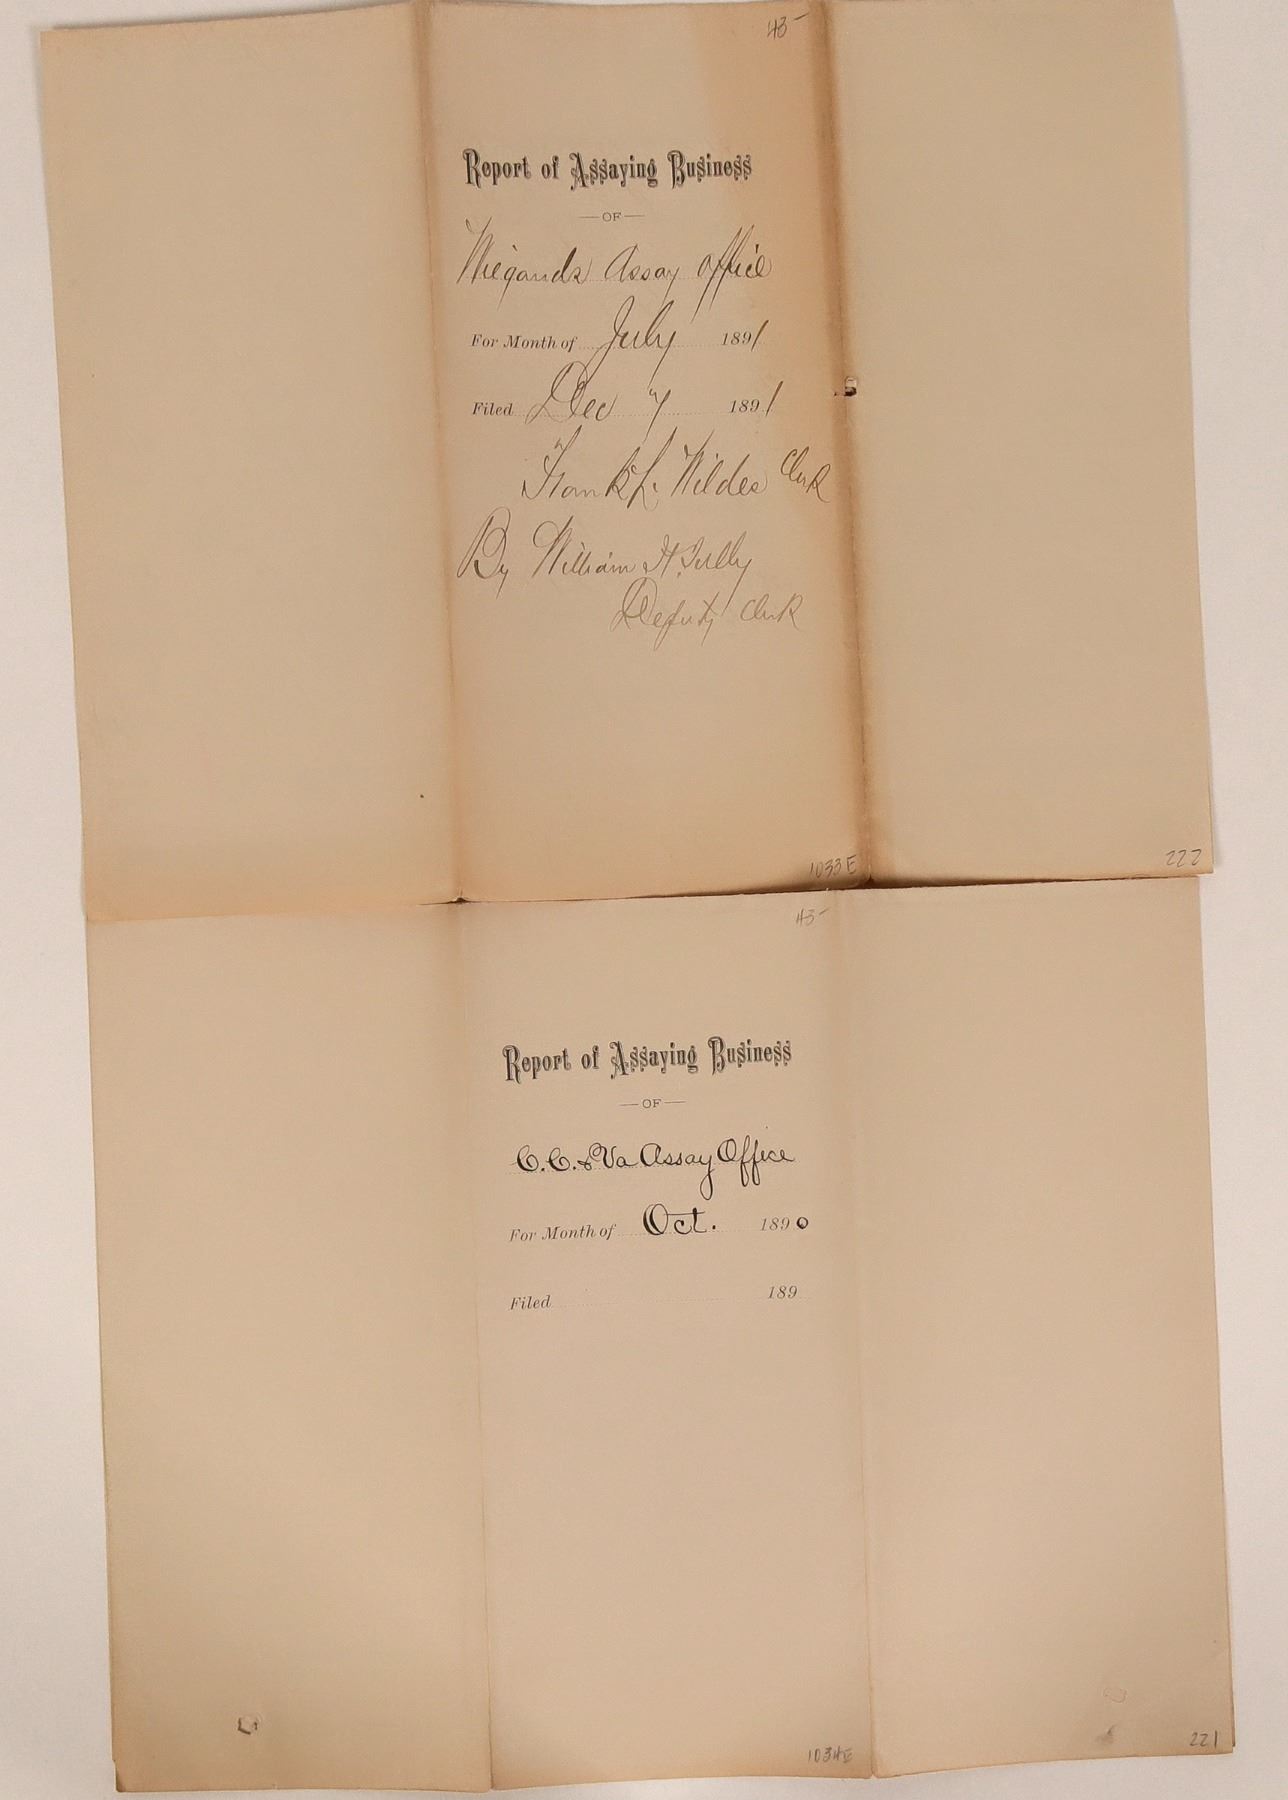 43-
Report of Assaying Business
—OF—
Wiegands Assay Office
For Month of July 1891
Filed Dec 7 1891
Frank L. Wildes Clerk
By William H. Tully
Deputy Clerk
1033 E
222
43-
Report of Assaying Business
—OF—
C.C. & Va Assay Office
For Month of Oct. 1890
Filed 189
1034E
221